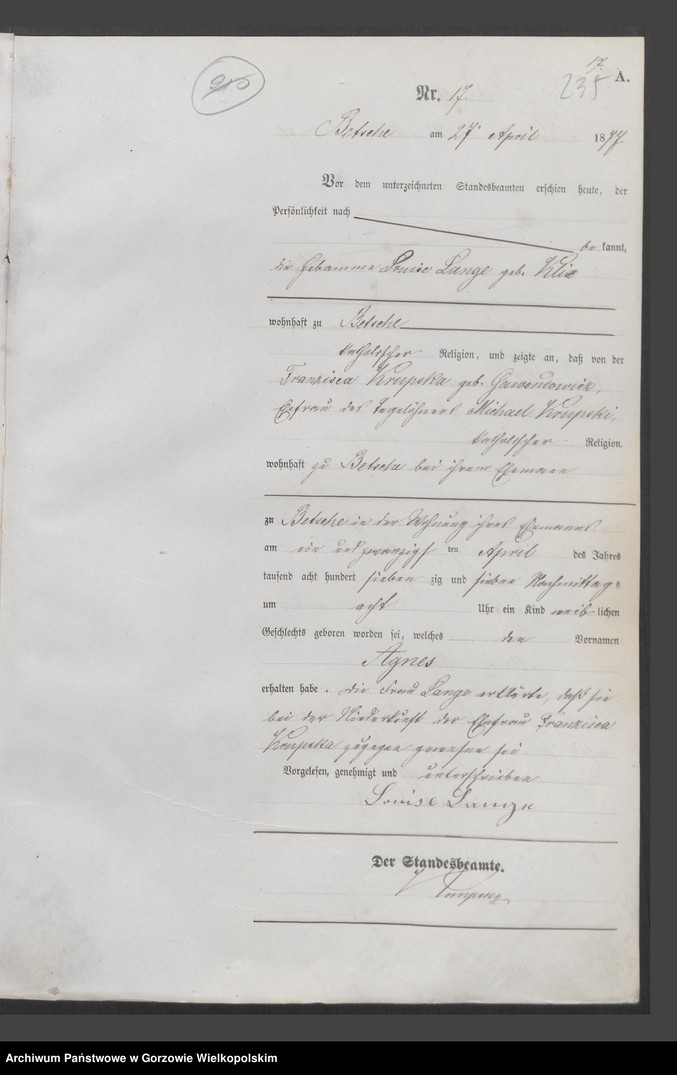 17.
235 A.
Nr. 17.
Betsche am 27n April 1877
Vor dem unterzeichneten Standesbeamten erschien heute, der
Persönlichkeit nach
be kannt,
die Hebamme Louise Lange geb. Klix
wohnhaft zu Betsche
katholischer Religion, und zeigte an, daß von der
Franzisca Krupska geb. Gawendowicz,
Ehefrau des Tagelöhners Michael Krupski,
katholischer Religion,
wohnhaft zu Betsche bei ihrem Ehemann
zu Betsche in der Wohnung ihres Ehemannes
am ein und zwanzigsten April des Jahres
tausend acht hundert sieben zig und sieben Nachmittags
um acht Uhr ein Kind weib lichen
Geschlechts geboren worden sei, welches den Vornamen
Agnes
erhalten habe. die Frau Lange erklärte, daß sie
bei der Niederkunft der Ehefrau Franzisca
Krupska zugegen gewesen sei
Vorgelesen, genehmigt und unterschrieben
Louise Lange
Der Standesbeamte.
Archiwum Państwowe w Gorzowie Wielkopolskim